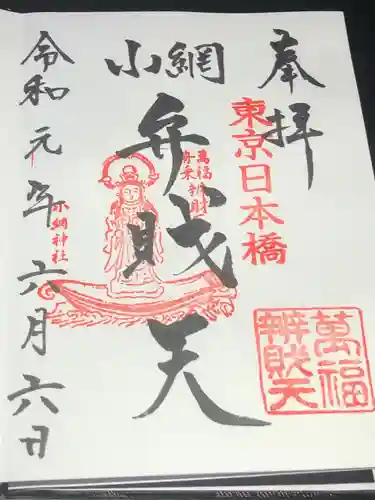 奉拝
東京日本橋
萬福
辨財天
小網
弁財天
萬福
舟乗弁財
小網神社
令和元年六月六日